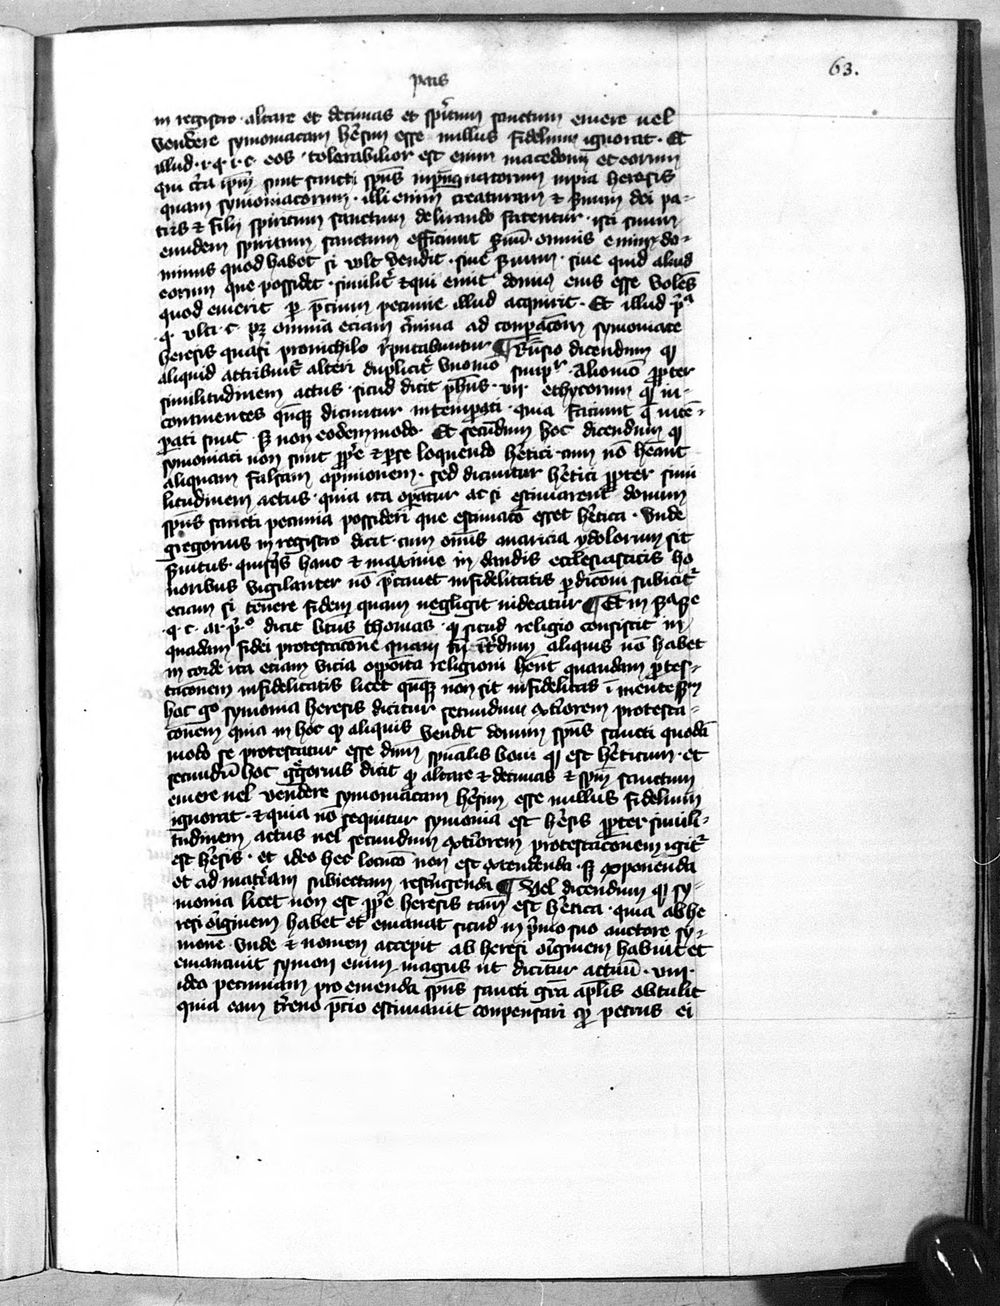 63.
in registro · altare et decimas et sp̄ritum sanctum emere uel
vendere symoniacam hēsim esse nullus fidelium ignorat · Et
illud · i · q · i · c · eos · tolerabilior est enim macedonij et eorum
qui c̄ca ip̄m sunt sancti sp̄us inpugnatorum inpia heresis
quam symoniacorum · illi enim creaturam et s̄uum dei pa-
tris et filij spiritum sanctum delirando fatentur · isti suum
eiusdem spiritum sanctum efficiunt s̄uum · omnis enim do-
minus quod habet si vult vendit · siue s̄uum · siue quid aliud
eorum que possidet · similit̄ et qui emit domiꝰ eius esse volēs
quod emerit p̱ p̄cium pecunie illud acquirit · Et illud p̄ᵃ
· q̄ · vlti · c · pꝫ omnia eciam c̄mina ad conparac̄om symoniace
heresis quasi pronichilo r̄putabuntur ¶ Rn̄sio dicendum qꝫ
aliquid attribuit̄ alteri duplicit̄ vnomō simpʳ · Aliomō ꝓpter
similitudinem actus · sicud dicit ph̄us · vij · ethycorum qꝫ in-
continentes qn̄qꝫ dicuntur intemp̱ati · quia faciunt q̄ intē-
p̱ati sunt · sꝫ non eodem modo · Et secundum hoc dicendum qꝫ
symoniaci non sunt ꝓp̄e et p̱se loquendo hētici · cum nō hēant
aliquam falsam opinionem · sed dicuntur hētici ꝓpter simi
litudinem actus · quia ita op̱antur ac si estimarent donum
sp̄us sancti pecunia possideri que estimac̄o esset hētica · vnde
gregorius in registro dicit · cum om̄is auaricia ydolorum sit
s̄uitus · quisq̄s hanc et maxime in dandis ecclesiasticis ho
noribus vigilanter nō p̄cauet infidelitatis p̱dic̄oni subicit̄
eciam si tenere fidem quam negligit uideatur ¶ Et in s̄a s̄e
· q · c · ar · p̄ᵒ dicit b̄tus thomas · qꝫ sicud religio consistit in
quadam fidei protestac̄one quam tn̄ int̄dum aliquis nō habet
in corde ita eciam vicia opposita religioni hēnt quandam p̱tes-
tac̄onem infidelitatis licet qn̄qꝫ non sit infidelitas ī mente s̄m
hoc gᵒ symonia heresis dicitur secundum ext̄iorem protesta-
c̄onem quia in hoc qꝫ aliquis vendit donum sp̄us sancti quodā
modo se protestatur esse dn̄m sp̄ualis doni qꝫ est hēticum · et
secundū hoc gḡorius dicit qꝫ altare et decimas et sp̄m sanctum
emere uel vendere symoniacam hēsim esse nullus fidelium
ignorat · et quia nō sequitur symonia est hēsis ꝓpter simili-
tudinem actus uel secundum ext̄iorem protestac̄onem igit̄
est hēsis · et ideo hec locuc̄o non est extendenda · sꝫ exponenda
et ad mat̄iam subiectam rest̄ngenda ¶ Vel dicendum qꝫ sy-
monia licet non est ꝓp̄e heresis tam̄ est hētica · quia ab he
resi oīginem habet et emanat sicud in p̄mo suo auctore sy-
mone · vnde et nomen accepit ab heresi oīginem habuit et
emanauit symon enim magus ut dicitur actuū · viij ·
ideo pecuniam pro emenda sp̄us sancti gr̄a ap̄lis obtulit
quia eam t̄reno p̄cio estimauit conpensari · qꝫ petrus ei